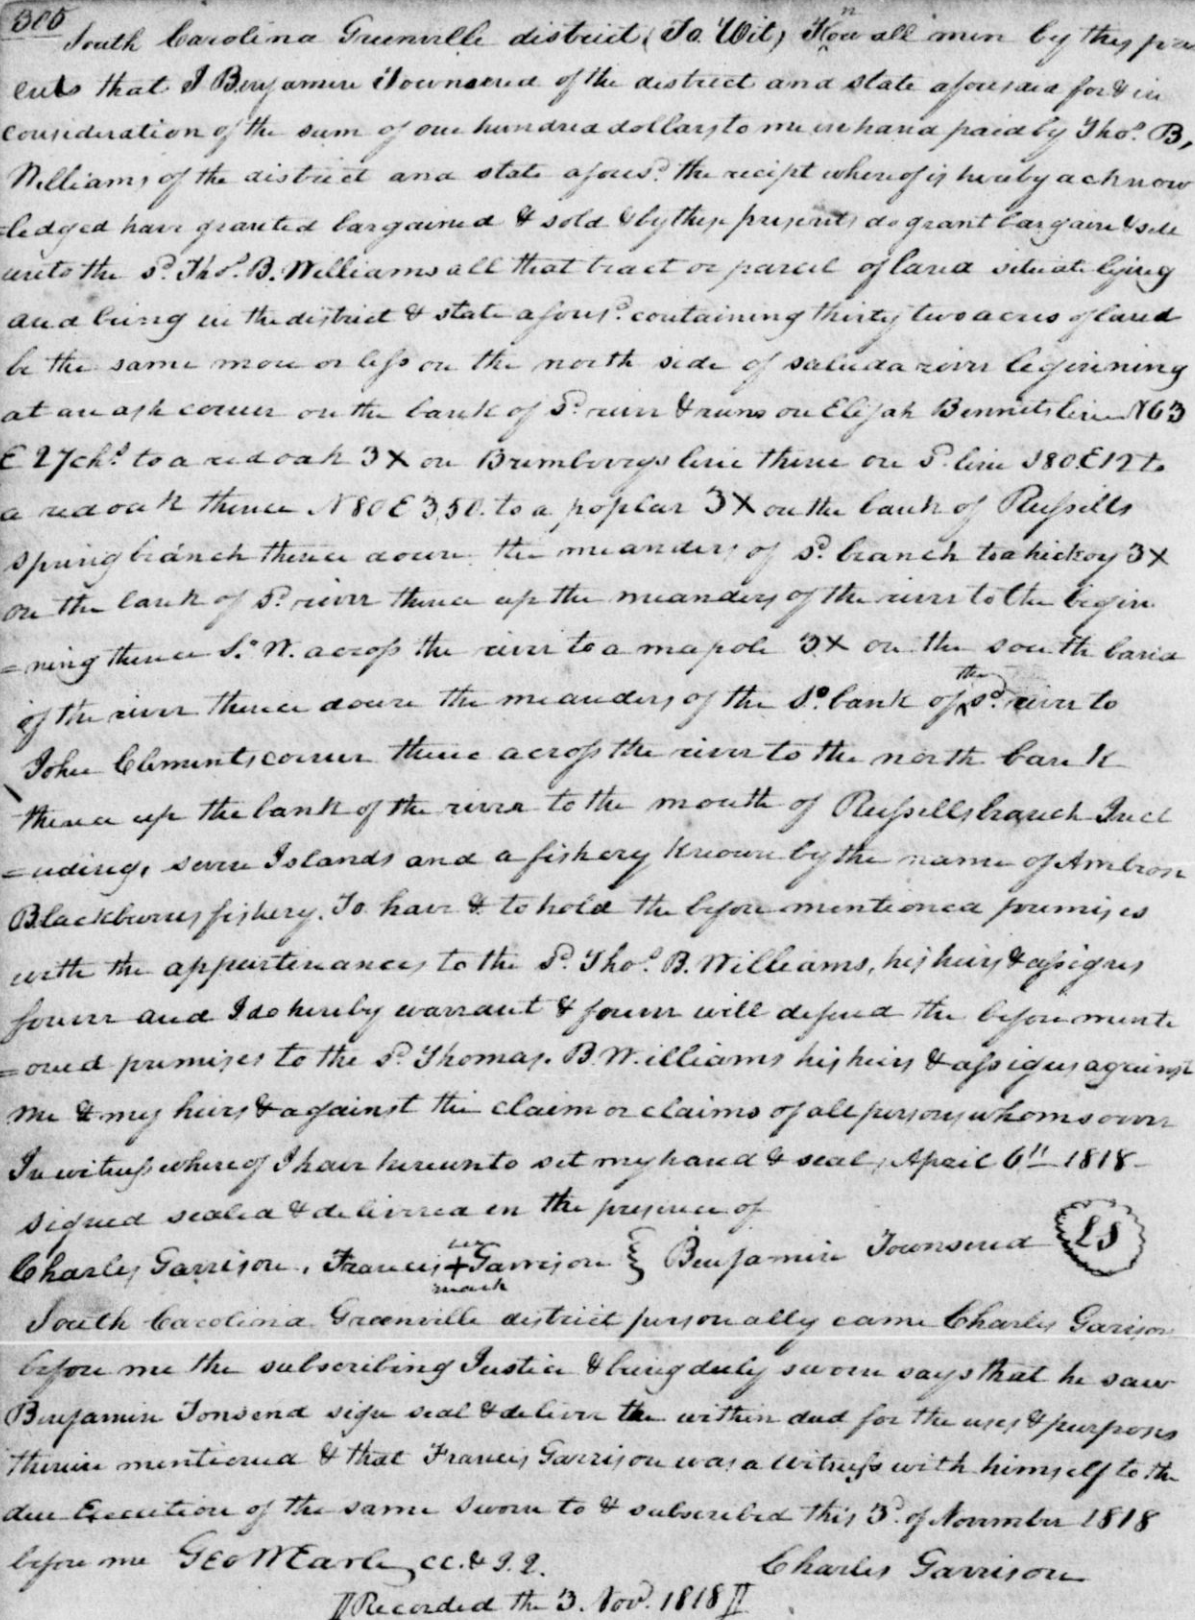 South Carolina Greenville district (To Wit) Know all men by they pre
ents that I Benjamin Townsend of the district and state aforesaid for & in
consideration of the sum of one hundred dollars to me in hand paid by Thos. B.
Williams of the district and state afores.d the recipt where of is hereby acknow
=ledged have granted bargained & sold & by these presents do grant bargain & sell
unto the sd. Thos. B. Williams all that tract or parcel of land situate lying
and being in the district & state afores.d containing thirty two acres of land
be the same more or less on the north side of saluda river beginning
at an ash corner on the bank of sd. river & runs on Elijah Bennets line N 63
E 27 chs. to a red oak 3X on line thence on sd. line S 80 E 12 to
a red oak thence N 80 E 3,50. to a poplar 3X on the bank of Russells
spring branch thence down the meanders of sd. branch to a hickoy 3X
on the bank of sd. river thence up the meanders of the river to the begin
=ning thence So. W. across the river to a mapole 3X on the south band
of the river thence down the meanders of the So. bank of the sd. river to
John Clements corner thence across the river to the north bank
thence up the bank of the river to the mouth of Russells branch Incl
=uding, seven Islands and a fishery known by the name of Ambrose
Blackburns fishery. To have & to hold the before mentioned premises
with the appurtenances to the sd. Thos. B. Williams, his heirs & assigns
forever and I do hereby warrant & forever will defend the before menti
=oned premises to the sd. Thomas. B. Williams his heirs & assigns against
me & my heirs & against the claim or claims of all persons whomsoever
In witness where of I have hereunto set my hand & seal, April 6th 1818
signed sealed & delivered in the presence of
Charles Garrison. Francis her + mark Garrison } Benjamin Townsend LS
South Carolina Greenville district personally came Charles Garison
before me the subscribing Justice & being duly sworn says that he saw
Benjamin Tonsend sign seal & deliver the within deed for the uses & purposes
therein mentioned & that Francis Garrison was a witness with himself to the
due Execution of the same sworn to & subscribed this 3d. of November 1818
before me Geo W Earle CC. & J.Q. Charles Garrison
Recorded the 3. Novr. 1818